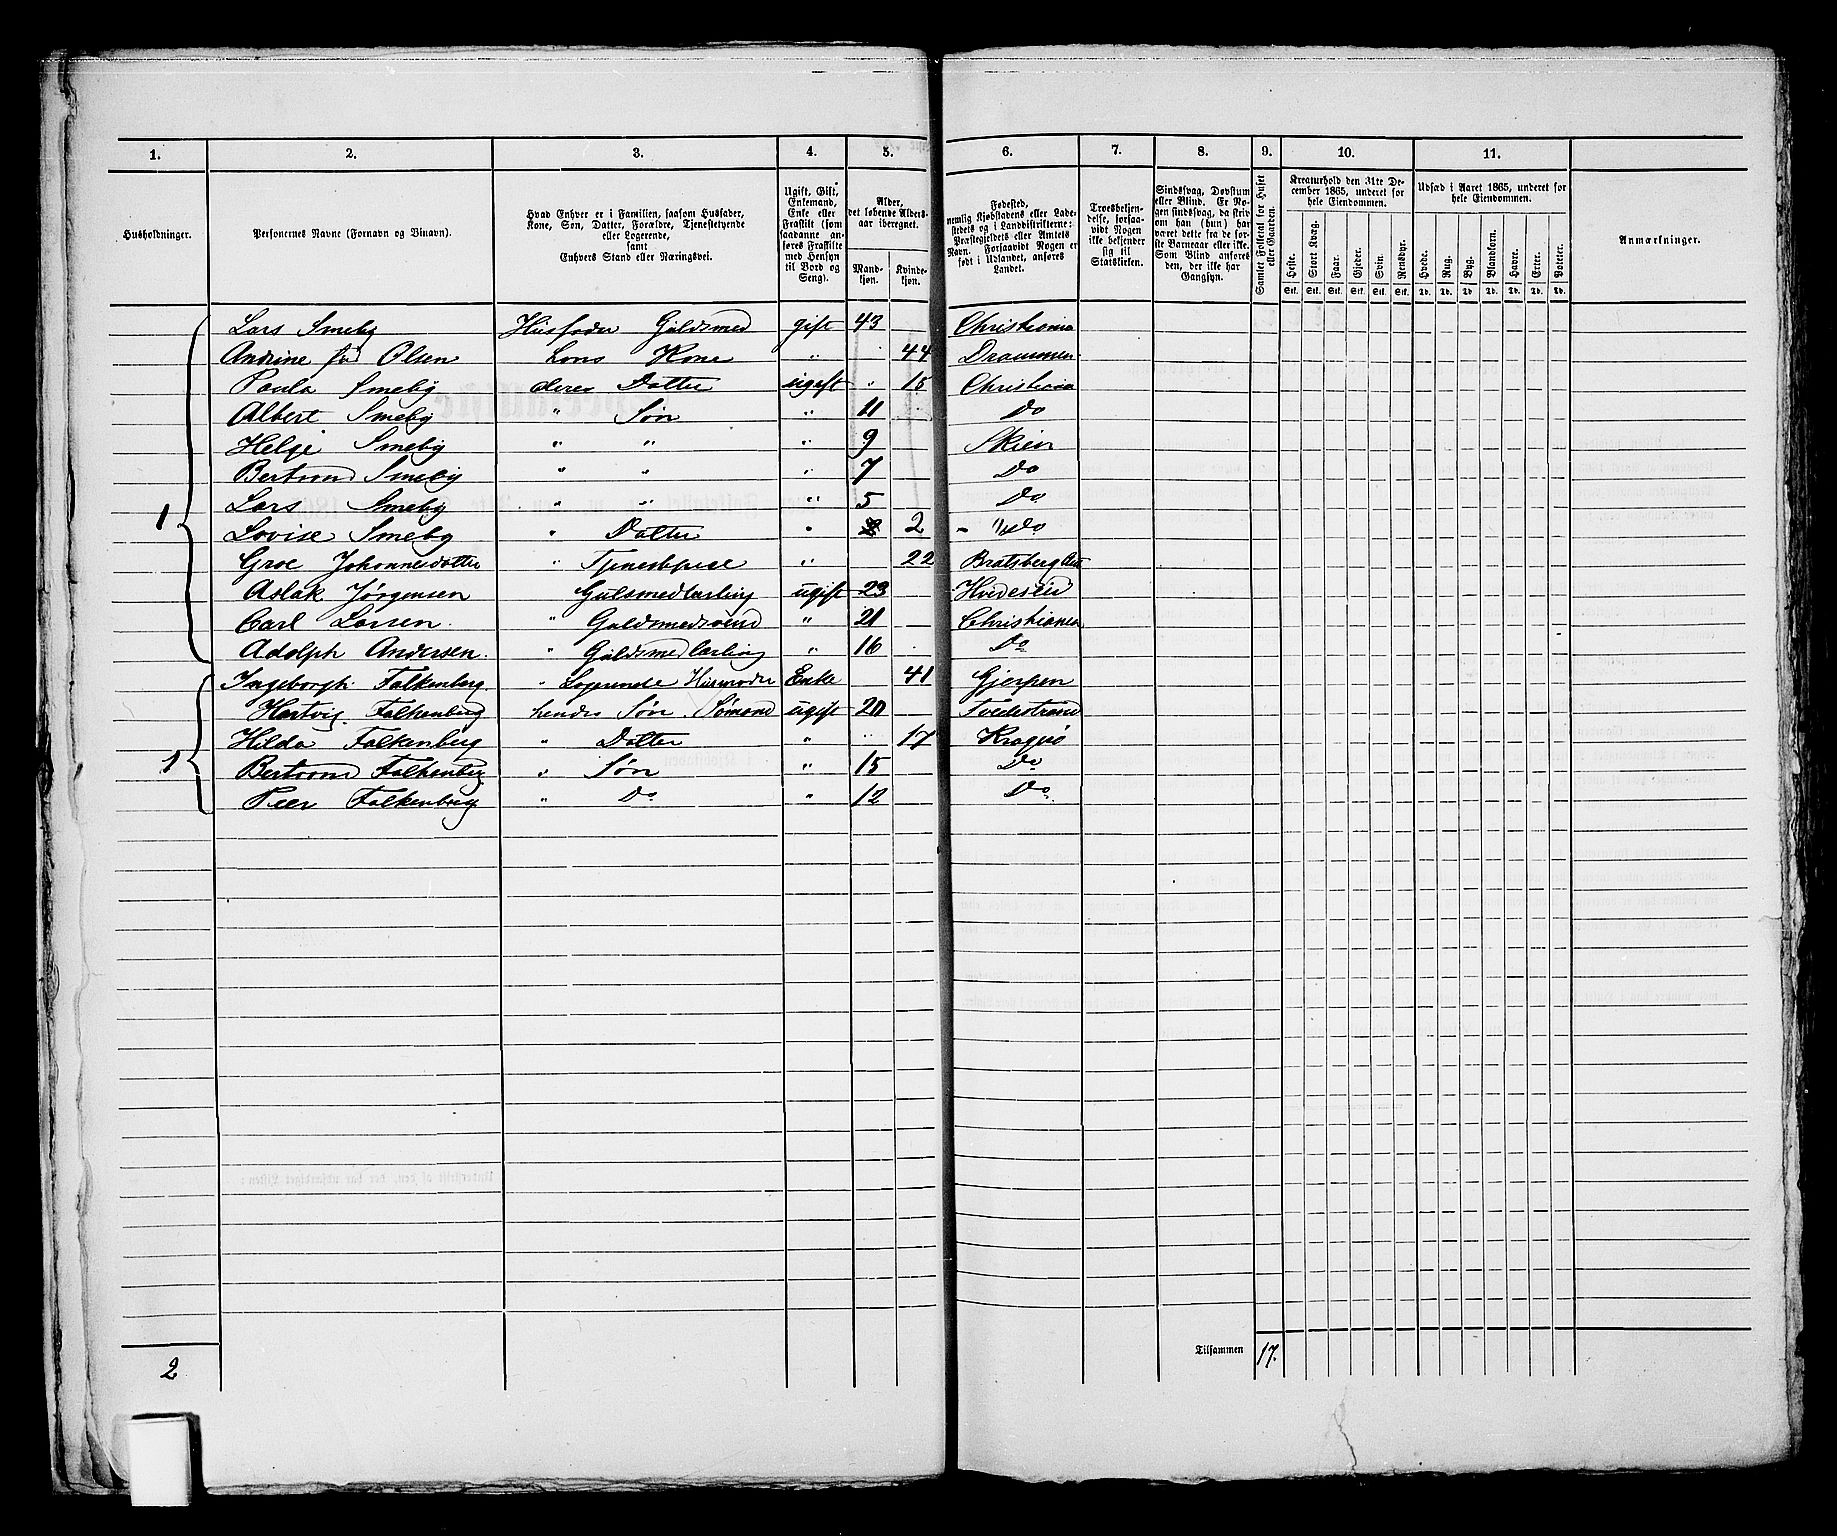 1. 2. 3. 4. 5. 6. 7. 8. 9. 10. 11.
Husholdninger.
Personernes Navne (Fornavn og Binavn).
Hvad Enhver er i Familien, saasom Husfader, Kone, Søn, Datter, Forældre, Tjenestetyende eller Logerende, samt Enhvers Stand eller Næringsvei.
Ugift, Gift, Enkemand, Enke eller Fraskilt (som saadanne anføres Fraskilte med Hensyn til Bord og Seng).
Alder, det løbende Aldersaar iberegnet.
Mandkjøn. Kvindekjøn.
Fødested, nemlig Kjøbstadens eller Ladestedets og i Landdistrikterne: Præstegjeldets eller Amtets Navn. Forsaavidt Nogen er født i Udlandet, anføres Landet.
Troesbekjendelse, forsaavidt Nogen ikke bekjender sig til Statskirken.
Sindssvag, Døvstum eller Blind. Er Nogen sindssvag, da skriv om han (hun) har været dette fra de første Barneaar eller ikke. Som Blind anføres den, der ikke har Gangsyn.
Samlet Folketal for Huset eller Gaarden.
Kreaturhold den 31te December 1865, underet for hele Eiendommen.
Heste. Stort Kvæg. Faar. Gjeder. Svin. Rensdyr.
Stk. Stk. Stk. Stk. Stk. Stk.
Udsæd i Aaret 1865, underet for hele Eiendommen.
Hvede. Rug. Byg. Blandkorn. Havre. Erter. Poteter.
Td. Td. Td. Td. Td. Td. Td.
Anmærkninger.
Lars Smeby Husfader Guldsmed gift 43 Christiania
Andrine fød Olsen Hans Kone " 44 Drammen
Paula Smeby deres Datter ugift " 15 Christiania
Albert Smeby " Søn " 11 Do
Helge Smeby " " " 9 Skien
Bertrand Smeby " " " 7 Do
1 Lars Smeby " " " 5 Do
Lovise Smeby " Datter " 2 " Do
Groe Johannesdatter " Tjenestpige " 22 Bratsberg
Aslak Jørgensen Gulsmedlærling ugift 23 Hvideseid
Carl Larsen. " Guldsmedsvend " 21 Christiania
Adolph Andersen. " Guldsmedlærling " 16 Do
Ingeborgh Falkenberg. " Logerende Husmoder Enke 41 Gjerpen
Hartvig Falkenberg hendes Søn. Sømand ugift 20 Tvedestrand
Hilda Falkenberg " Datter " " 17 Kragerø
1 Bertrand Falkenberg " Søn " 15 Do
Peer Falkenberg " Do " 12 Do
2
Tilsammen 17.